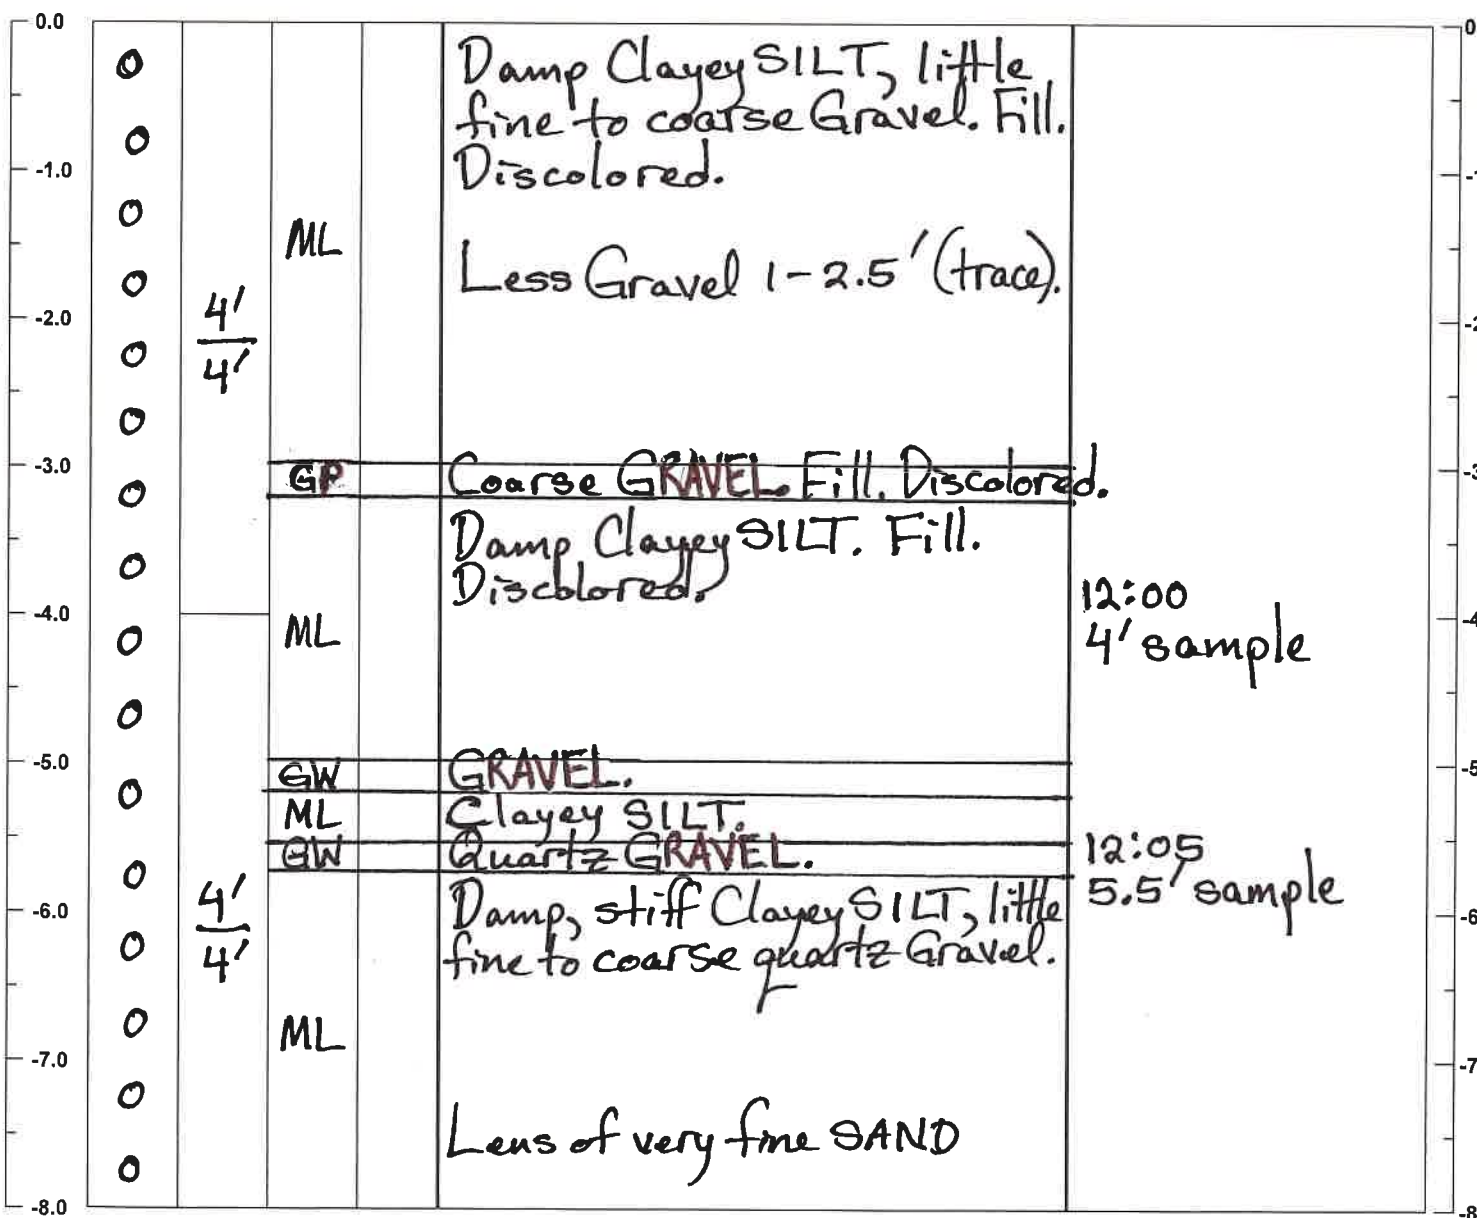 0.0
-1.0
-2.0
-3.0
-4.0
-5.0
-6.0
-7.0
-8.0
4'
4'
4'
4'
ML
GP
ML
GW
ML
GW
ML
Damp Clayey SILT, little
fine to coarse Gravel. Fill.
Discolored.
Less Gravel 1-2.5' (trace).
Coarse GRAVEL. Fill. Discolored.
Damp Clayey SILT. Fill.
Discolored.
GRAVEL.
Clayey SILT.
Quartz GRAVEL.
Damp, stiff Clayey SILT, little
fine to coarse quartz Gravel.
Lens of very fine SAND
12:00
4' sample
12:05
5.5' sample
0
-1
-2
-3
-4
-5
-6
-7
-8